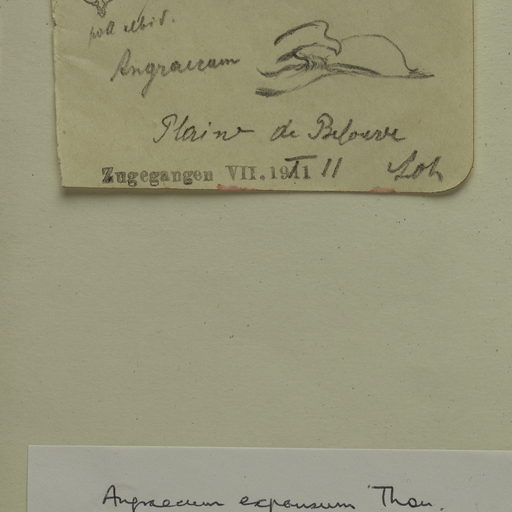 Angraecum
Plaine de Belouve
Zugegangen VII. 1911 II 11 Loh
Angraecum expansum Thou.